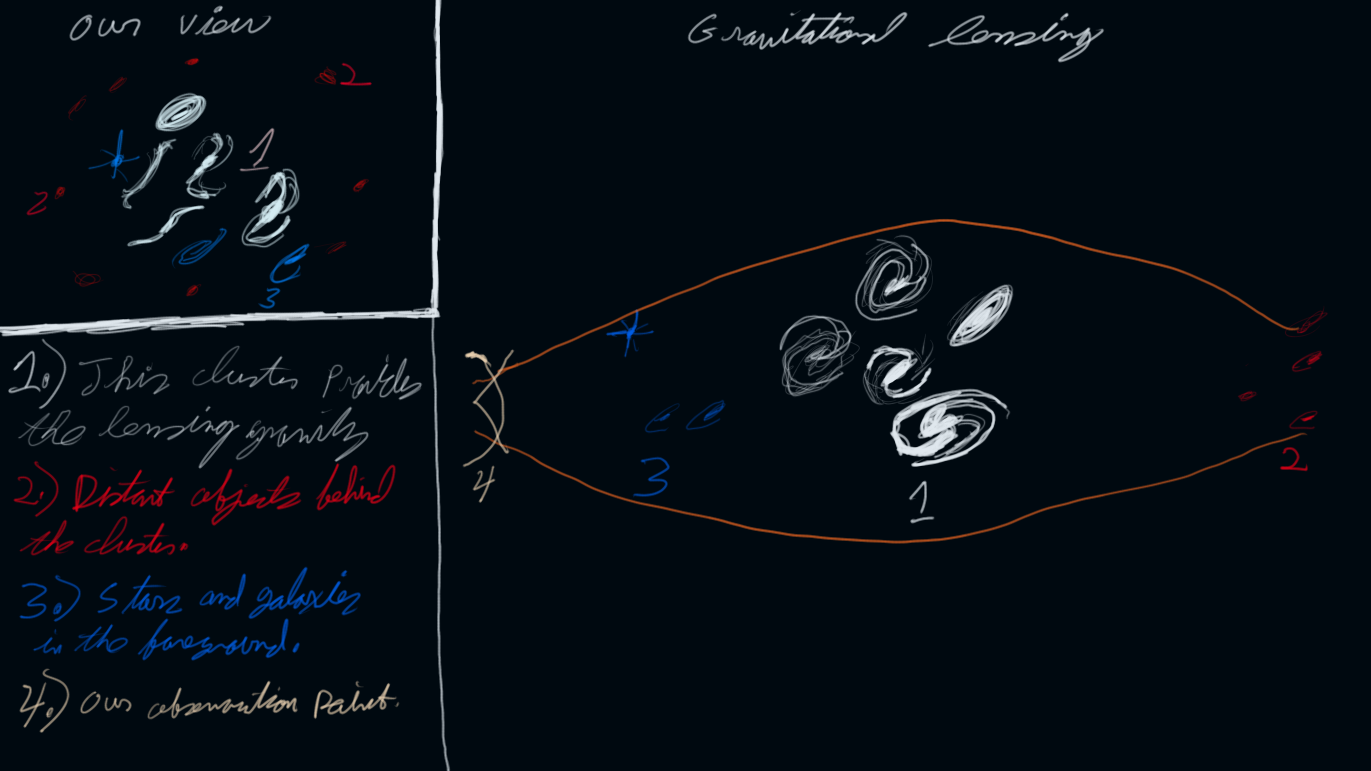 Our view
2
1
2
3
1.) This cluster provides
the lensing gravity
2.) Distant objects behind
the cluster.
3.) Stars and galaxies
in the foreground.
4.) Our observation Point.
Gravitational lensing
4
3
1
2